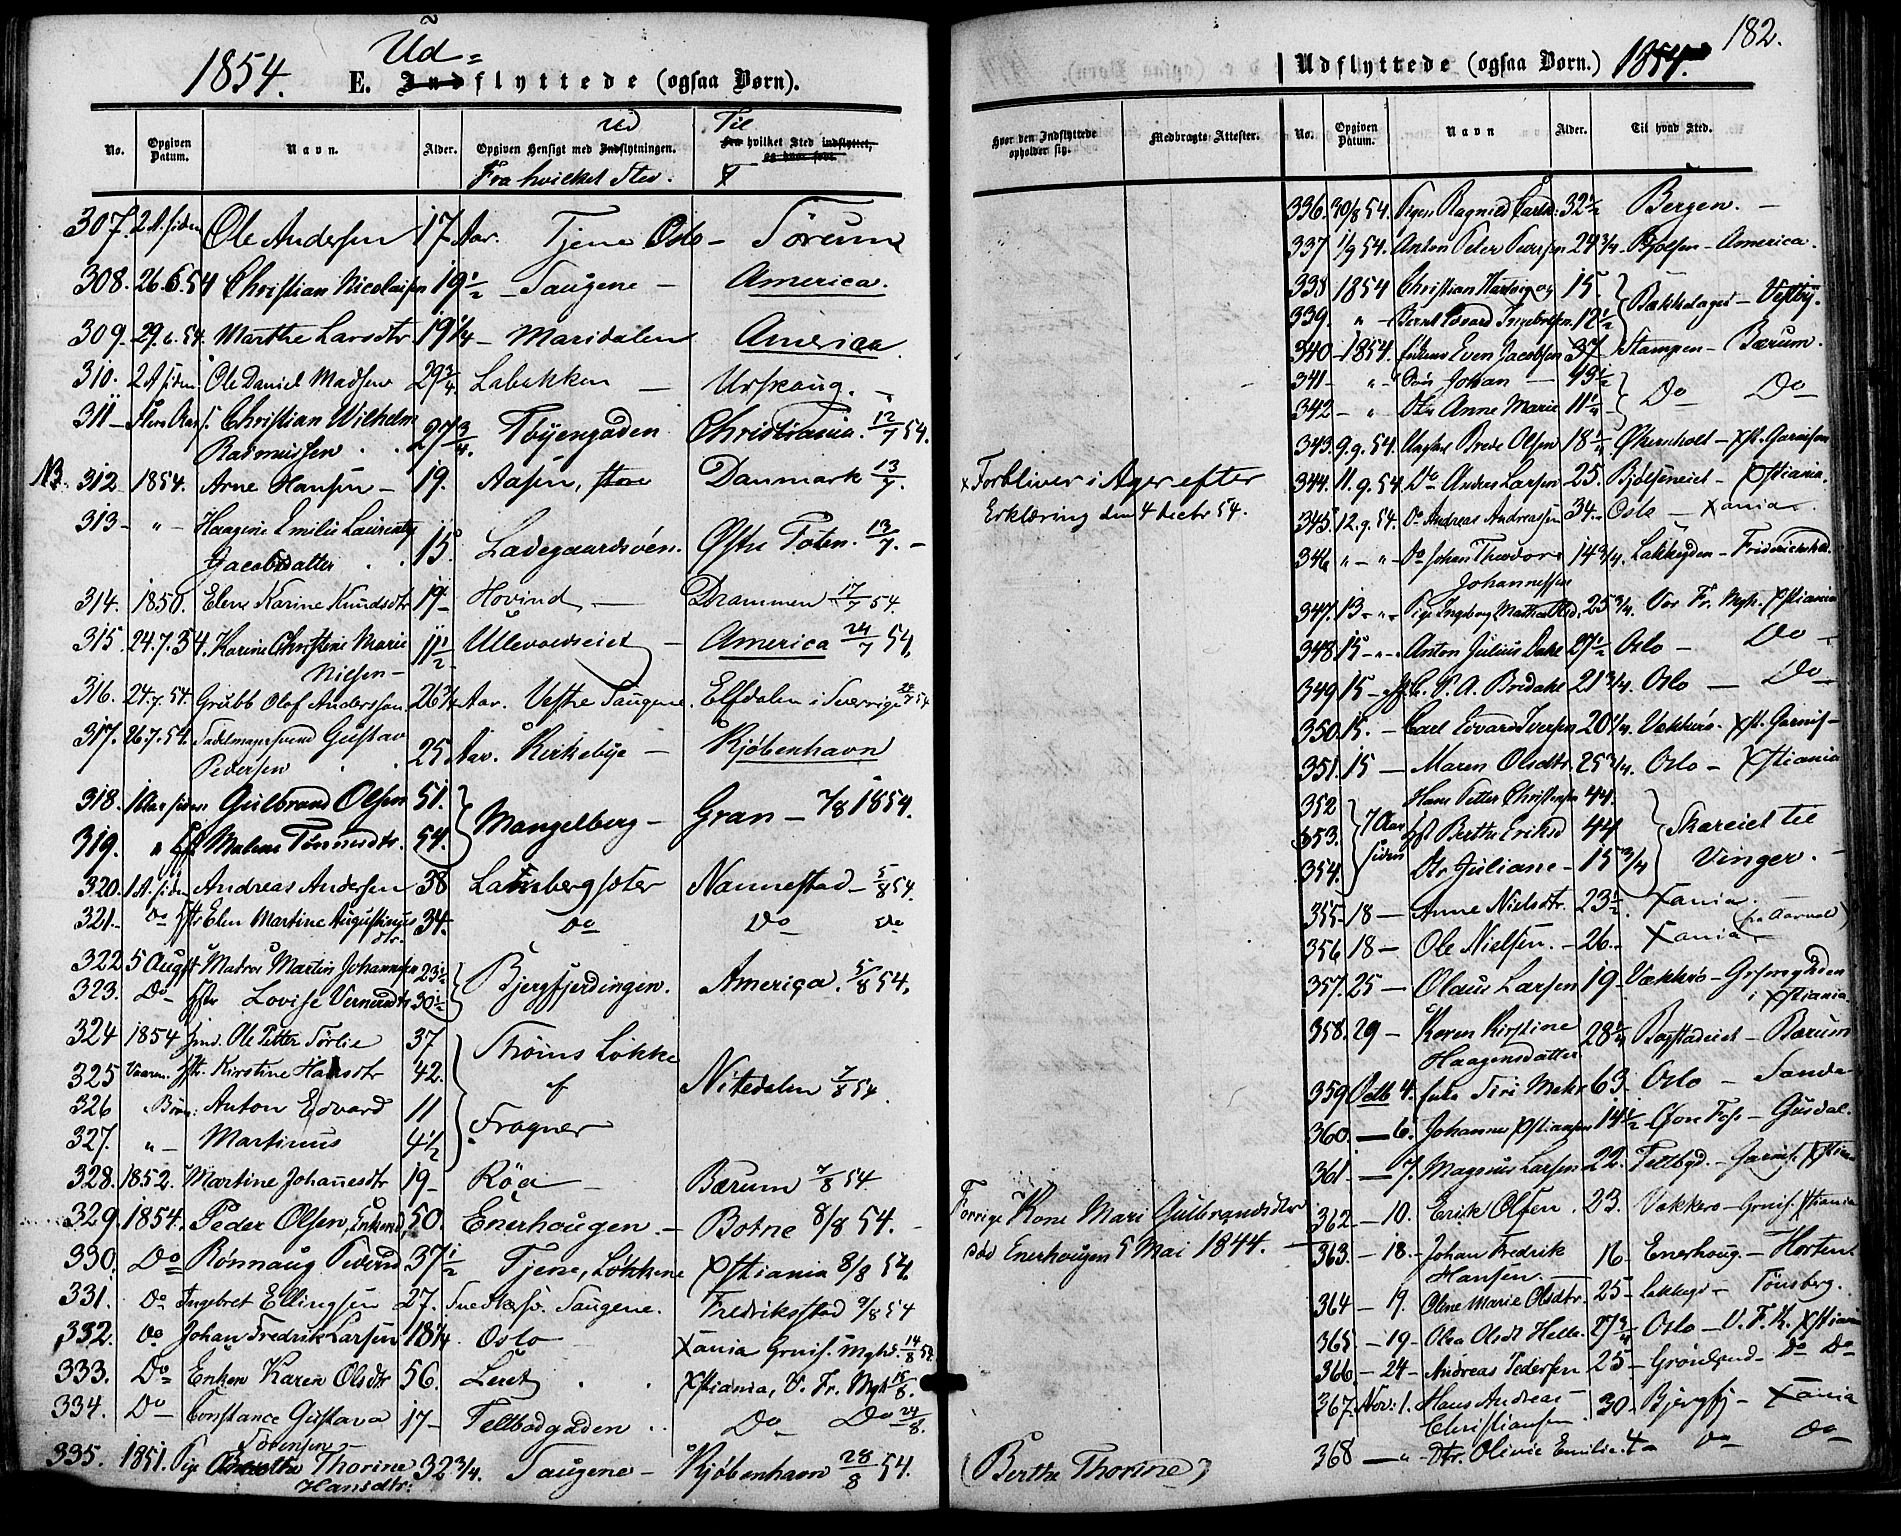 1854.
Ud=
E. Indflyttede (ogsaa Børn).
No. Opgiven Datum. Navn. Alder. Opgiven Hensigt med Indflytningen. Ud Fra hvilket Sted. Til Fra hvilket Sted indflyttet,
307. 2 A. siden Ole Andersen 17 Aar. Tjene Oslo - Sørum
308. 26.6.54 Christian Nicolaisen 19 1/2 - Saugene - America.
309. 29.6.54. Marthe Larsdtr 19 1/4 - Maridalen America
310. 2 A siden Ole Daniel Madsen 29 3/4 Labakken - Urskoug.
311 - flere Aar s: Christian Wilhelm
Rasmussen . . 27 3/4. Tøyengaden Christiania. 12/7 54.
312 1854. Arne Hansen - 19. Aasen, Danmark 13/7.
313 - " - Haagine Emilie
Jacobsdatter . . 15. Ladegaardsøen. Østre Toten. 13/7. -
314. 1850. Elene Karine Knudsdtr 19 - Hovind - Drammen 17/7 54.
315. 24.7.54. Karine Christine Marie
Nielsen - 11 1/2 Ullevoldseiet - America 24/7 54.
316. 24.7.54. Grubb Olof Andersson 26 3/4 Aar. Vestre Saugene. Elfdalen i Sverrige
317. 26.7.54. Sadelmagersvend Gustav
Pedersen . . 25 Aar. Kirkebye - Kjøbenhavn
318. 1 Aar siden Gulbrand Olsen 51. Mangelberg - Gran - 7/8 1854.
319. " Malene Tønnesdtr. 54.
320. 1 A. siden Andreas Andersen 38 Nannestad - 5/8 54.
321. Do Elen Martine Augustinusdtr. 34. Do Do do
322 5 August Matros Martin Johannesen 23 1/2 Bjergfjerdingen. America. 5/8 54.
323. Do Hstr Lovise Vernersdtr 30 1/2
324 1854 Hmd. Ole Petter Sørlie 37 Thoms Løkke
325 Vaaren. Hstr. Kirstine Hansdtr 42. af Nitedalen 7/8 54.
326 Børn: Anton Edvard 11
327. " - Martinus 4 1/2 Frogner
328. 1852. Martine Johannesdtr 19 - Røa - Bærum 7/8 54.
329. 1854. Peder Olsen, Enkemd, 50. Enerhougen. - Botne 8/8 54. -
330. Do Rønnaug Pedersd 37 1/2 Tjene, Løkkene Xstiania 8/8 54.
331. Do Ingebret Ellingsen 27. Snedkersv. Saugene. Fredriksstad 9/8 54
332. Do Johan Fredrik Larsen 18 3/4. Oslo - Xania Grnis. Mghd. 14/8 54.
333. Do Enken Karen Olsdtr 56. Leret . . Xstiania, V. Fr. Mgh 15/8.
334. Do Constance Gustava
Sørensen - 17 - Feltbodgaden . . Do Do 24/8.
335. 1851. Pige Thorine
Hansdtr: 32 3/4. Saugene - Kjøbenhavn 28/8 54.
182.
Udflyttede (ogsaa Børn.) 1854.
Hvor den Indflyttede opholder sig. Medbragte Attester. No. Opgiven Datum. Navn Alder. Til hvad Sted.
x Forbliver i Ager efter
Erklæring den 4 decbr 54.
Forrige Kone Mari Gulbrandsdtr
død Enerhougen 5 Mai 1844.
(Berthe Thorine)
336. 30/8 54. Pigen Ragnild 32 1/2 Bergen. -
337 1/9 54. Anton Peter 24 3/4 Bjølsen - America.
338 1854 Christian Hartvig og 15. Bækkelaget - Vestby.
339. " - Bernt Edvard Ingebretsen. 12 1/2
340 - 1854. Enkem Even Jacobsen 37 - Stampen - Bærum.
341 - " - Søn Johan - 13 1/2 Do Do
342 - " Dtr Anne Marie 11 1/4
343. 9.9.54. Ungkar Brede Olsen 18 1/4 - Xst. Garnison
344. 11.9.54. Do Anders Larsen 25. Bjølseneiet - Xstiania.
345 12.9.54. Do Andreas Andreassen 34. Oslo - Xania
346 " - " - Do Johan Theodor
Johannessen 14 3/4. Lakkegden - Fridrickshald.
347. 13 - " - Pige Ingeborg 25 3/4. Vor Fr. Mgh. Xstiania
348 15 - " - Anton Julius 27 1/2 Oslo - Do -
349 15 - 21 3/4. Oslo - Do -
350. 15. - Carl Edvard Iversen 20 1/4. Vækkerø - Xst. Garnis -
351. 15 - Maren Olsdtr. 25 3/4. Oslo - Xstiania
352 7 Aar Hans Petter Christensen 44. Skareiet til
353. siden Hst Berthe Eriksd 44
354. Dtr Juliane - 15 3/4 Vinger. -
355 - 18 - Anne Nielsdtr. 23 1/2. Xania.
356 18 - Ole Nielsen. - 26. - Xania -
357. 25 - Olaus Larsen 19 - Vækkerø - Grønnegaden
i Xstiania
358. 29 - Karen Kirstine
Haagensdatter 28 1/4 Bogstadeiet - Bærum
359 Octb 4. Enke Siri 63 - Oslo - Sande
360. - 6. Johannes Xstiansen 14 1/2 - Gusdal.
361 - 7. Magnus Larsen 22. Feltbgd. - Garnis. Xstiania
362 - 10. Erik Olsen. 23. Vækkerø - Grnis. Xstiania
363. - 18. - Johan Fredrik
Hansen 16 - Enerhoug. - Horten
364 - 19. Oline Marie Olsdtr. 25 - Lakkegd - Tønsberg.
365 - 19 - Olea Olsdt Helle. 27 3/4 Oslo - V. F. K. Xstiania
366 - 24 - Andreas Pedersen 25 - Grønland - Do Do
367. Nov: 1. Hans Andreas
Christiansen. 30 - Bjergfj - Xania
368 - " - Dtr. Olivie Emilie. 4 a Do Do